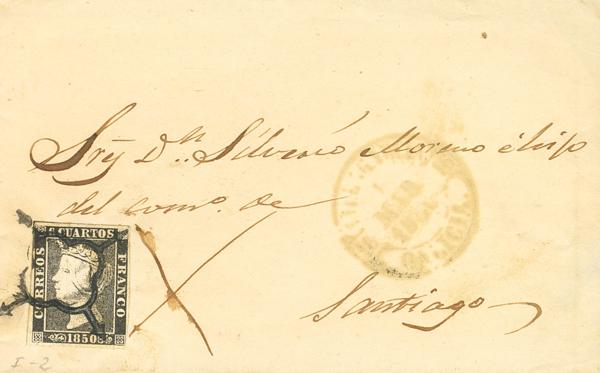 Sres D.n Silverio Moreno é hijo
del com.o de
Santiago
6 CUARTOS
CORREOS
FRANCO
1850
I-2